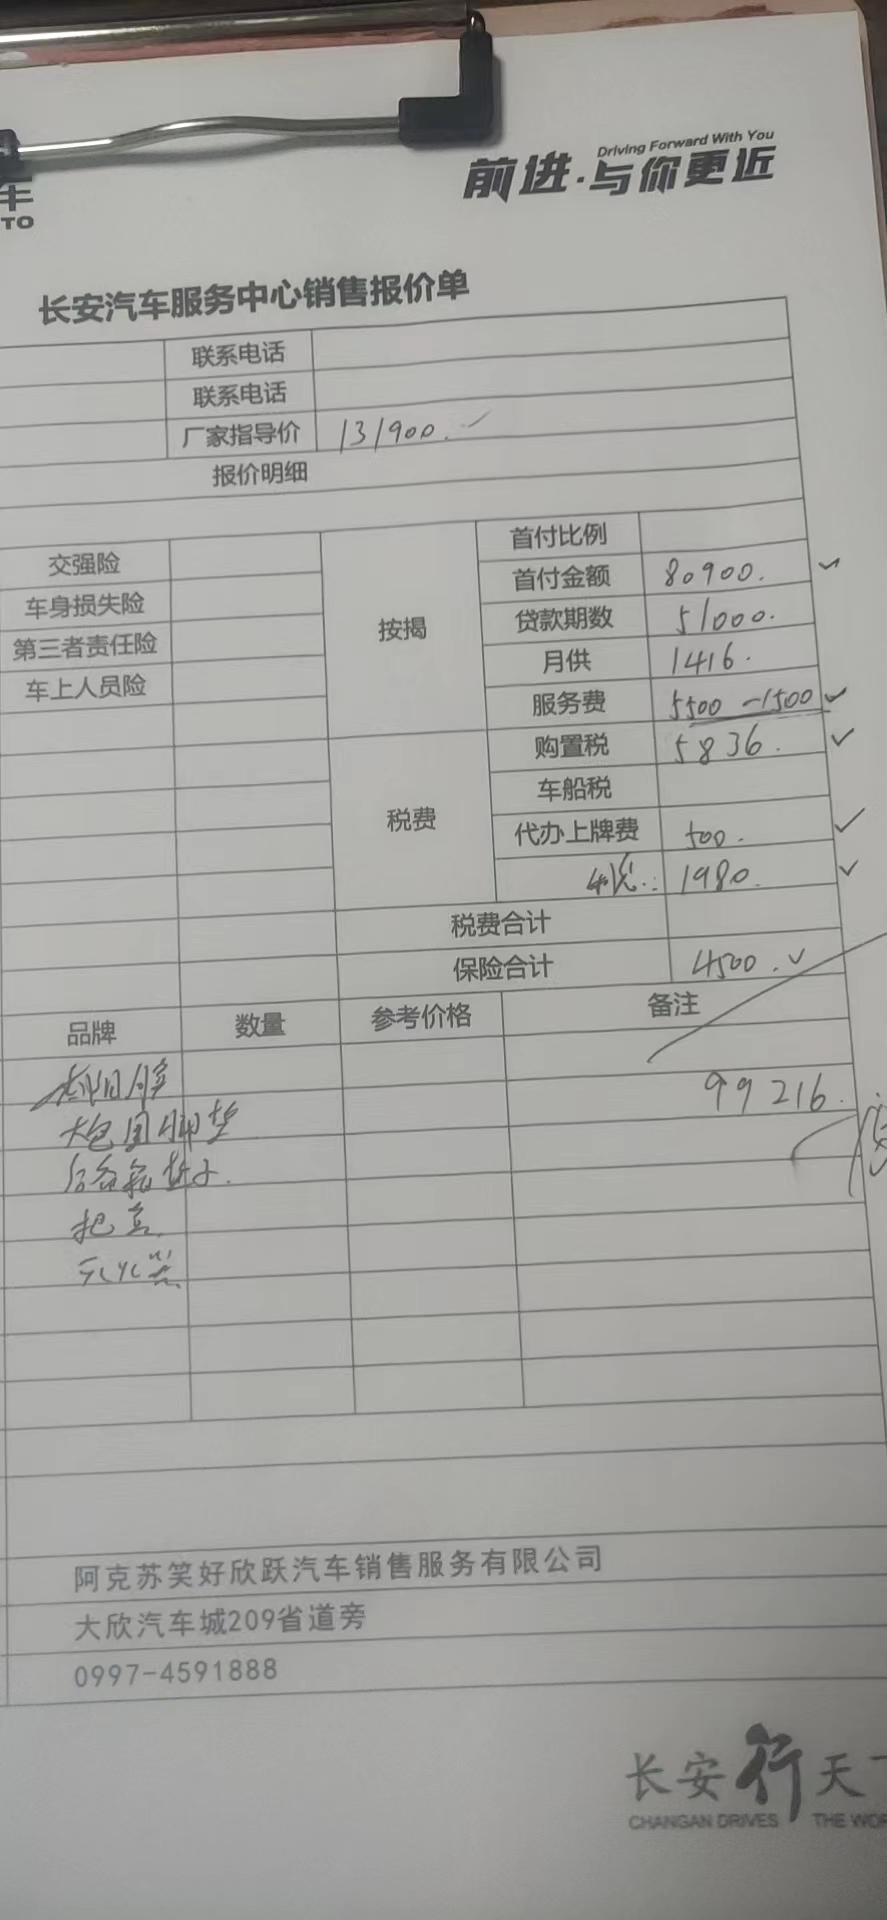 车
TO
Driving Forward With You
前进·与你更近
长安汽车服务中心销售报价单
联系电话
联系电话
厂家指导价 131900.
报价明细
交强险
车身损失险
第三者责任险
车上人员险
按揭
首付比例
首付金额 80900.
贷款期数 51000.
月供 1416.
服务费 5500 -1500
税费
购置税 5836.
车船税
代办上牌费 500.
1980.
税费合计
保险合计 4500.
品牌 数量 参考价格 备注
99216.
太阳膜
大包围脚垫
后备箱垫子.
把套
灭火器
阿克苏笑好欣跃汽车销售服务有限公司
大欣汽车城209省道旁
0997-4591888
长安行天
CHANGAN DRIVES THE WOR